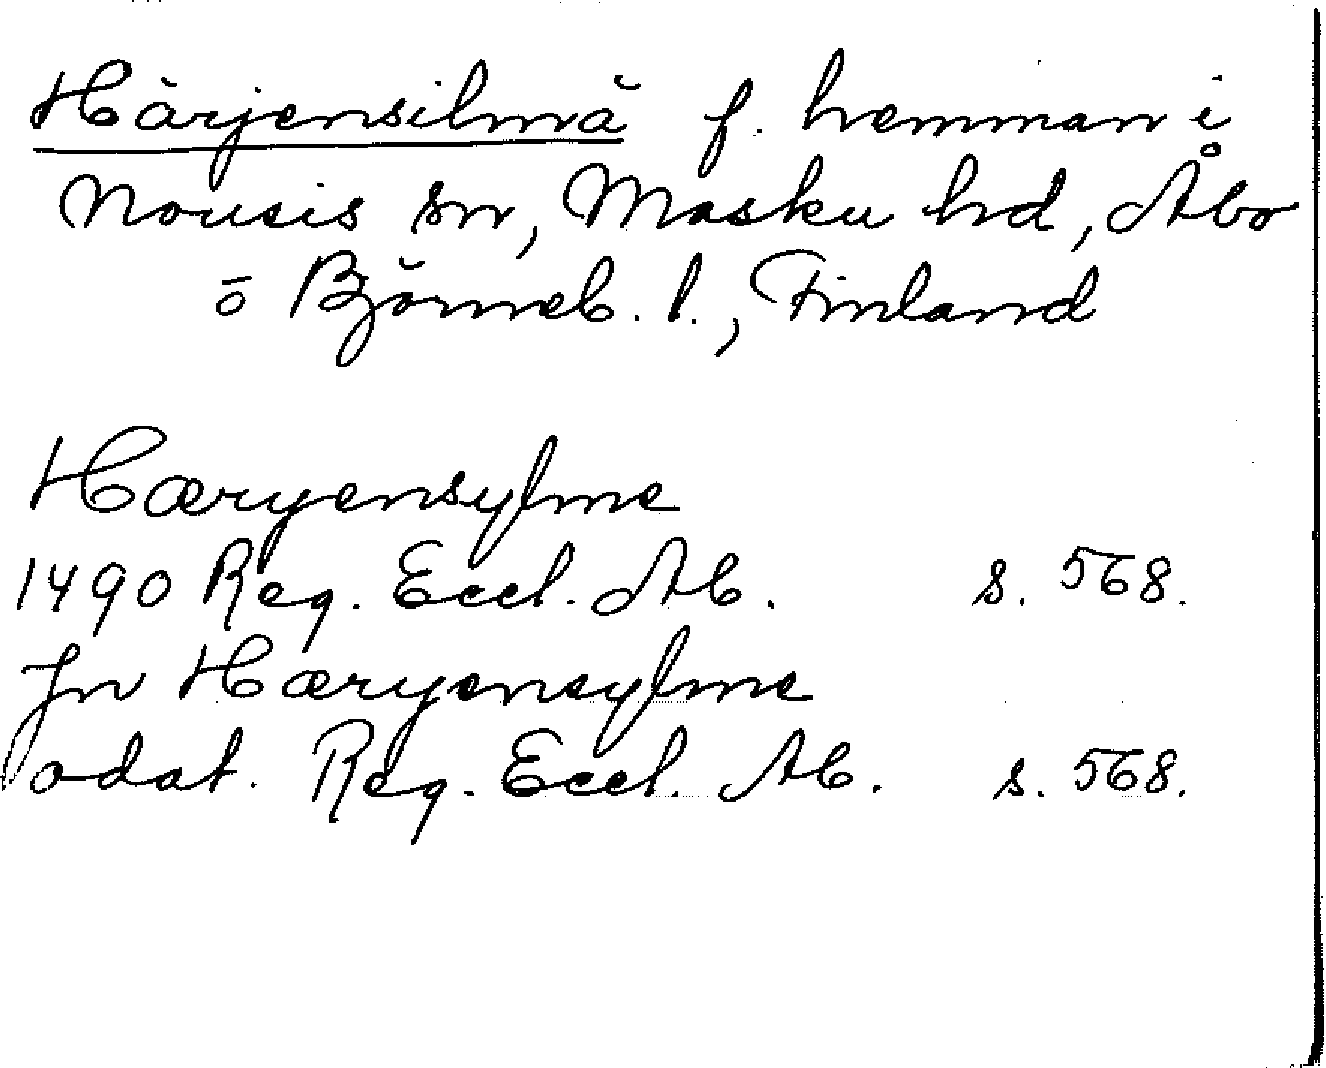 Härjensilmä f. hemman i
Nousis sn, Masku hd, Åbo
o Björneb. l., Finland
Hæryensylme
1490 Reg. Eccl. Ab. s. 568.
Jn Hæryensylme
odat. Reg. Eccl. Ab. s. 568.